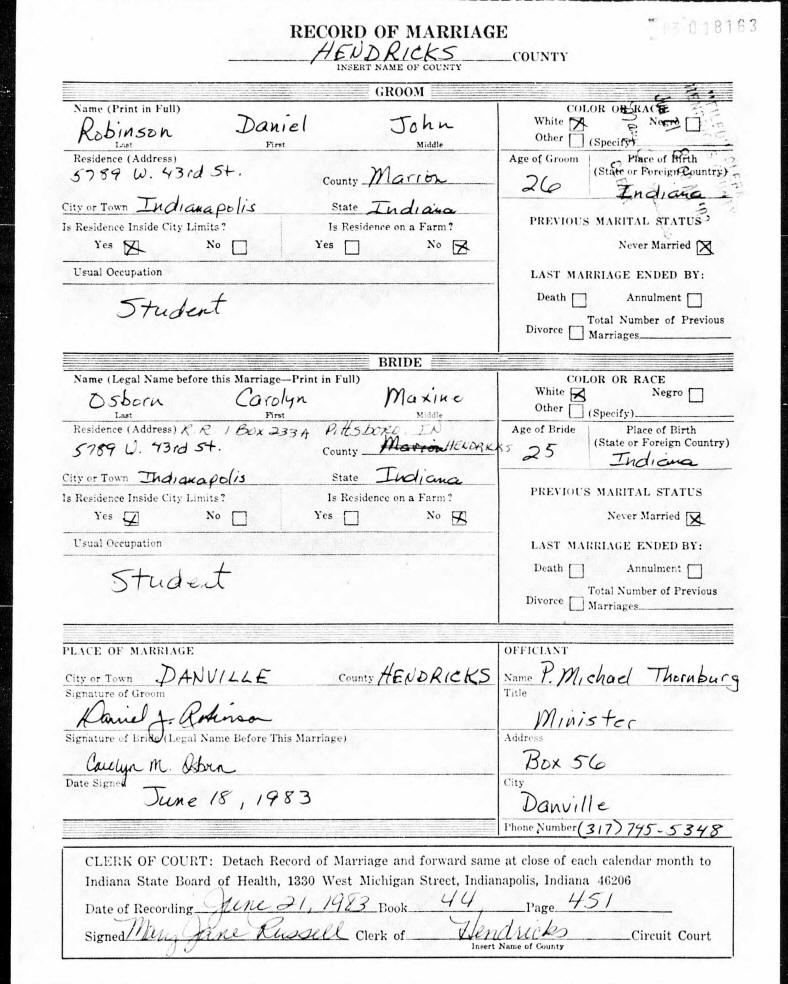 RECORD OF MARRIAGE
018163
HENDRICKS COUNTY
INSERT NAME OF COUNTY
GROOM
Name (Print in Full)
Robinson Daniel John
Last First Middle
COLOR OR RACE
White Negro
Other (Specify)
Residence (Address)
5789 W. 43rd St. County Marion
City or Town Indianapolis State Indiana
Age of Groom Place of Birth
(State or Foreign Country)
26 Indiana
Is Residence Inside City Limits? Is Residence on a Farm?
Yes No Yes No
PREVIOUS MARITAL STATUS
Never Married
Usual Occupation
Student
LAST MARRIAGE ENDED BY:
Death Annulment
Divorce Total Number of Previous
Marriages
BRIDE
Name (Legal Name before this Marriage—Print in Full)
Osborn Carolyn Maxine
Last First Middle
COLOR OR RACE
White Negro
Other (Specify)
Residence (Address) R R 1 Box 233A Pittsboro, IN
5789 W. 43rd St. County Marion HENDRICKS
City or Town Indianapolis State Indiana
Age of Bride Place of Birth
(State or Foreign Country)
25 Indiana
Is Residence Inside City Limits? Is Residence on a Farm?
Yes No Yes No
PREVIOUS MARITAL STATUS
Never Married
Usual Occupation
Student
LAST MARRIAGE ENDED BY:
Death Annulment
Divorce Total Number of Previous
Marriages
PLACE OF MARRIAGE
City or Town DANVILLE County HENDRICKS
Signature of Groom
Daniel J. Robinson
Signature of Bride (Legal Name Before This Marriage)
Carolyn M. Osborn
Date Signed
June 18, 1983
OFFICIANT
Name P. Michael Thornburg
Title
Minister
Address
Box 56
City
Danville
Phone Number (317) 745-5348
CLERK OF COURT: Detach Record of Marriage and forward same at close of each calendar month to
Indiana State Board of Health, 1330 West Michigan Street, Indianapolis, Indiana 46206
Date of Recording June 21, 1983 Book 44 Page 451
Signed Mary Jane Russell Clerk of Hendricks Circuit Court
Insert Name of County